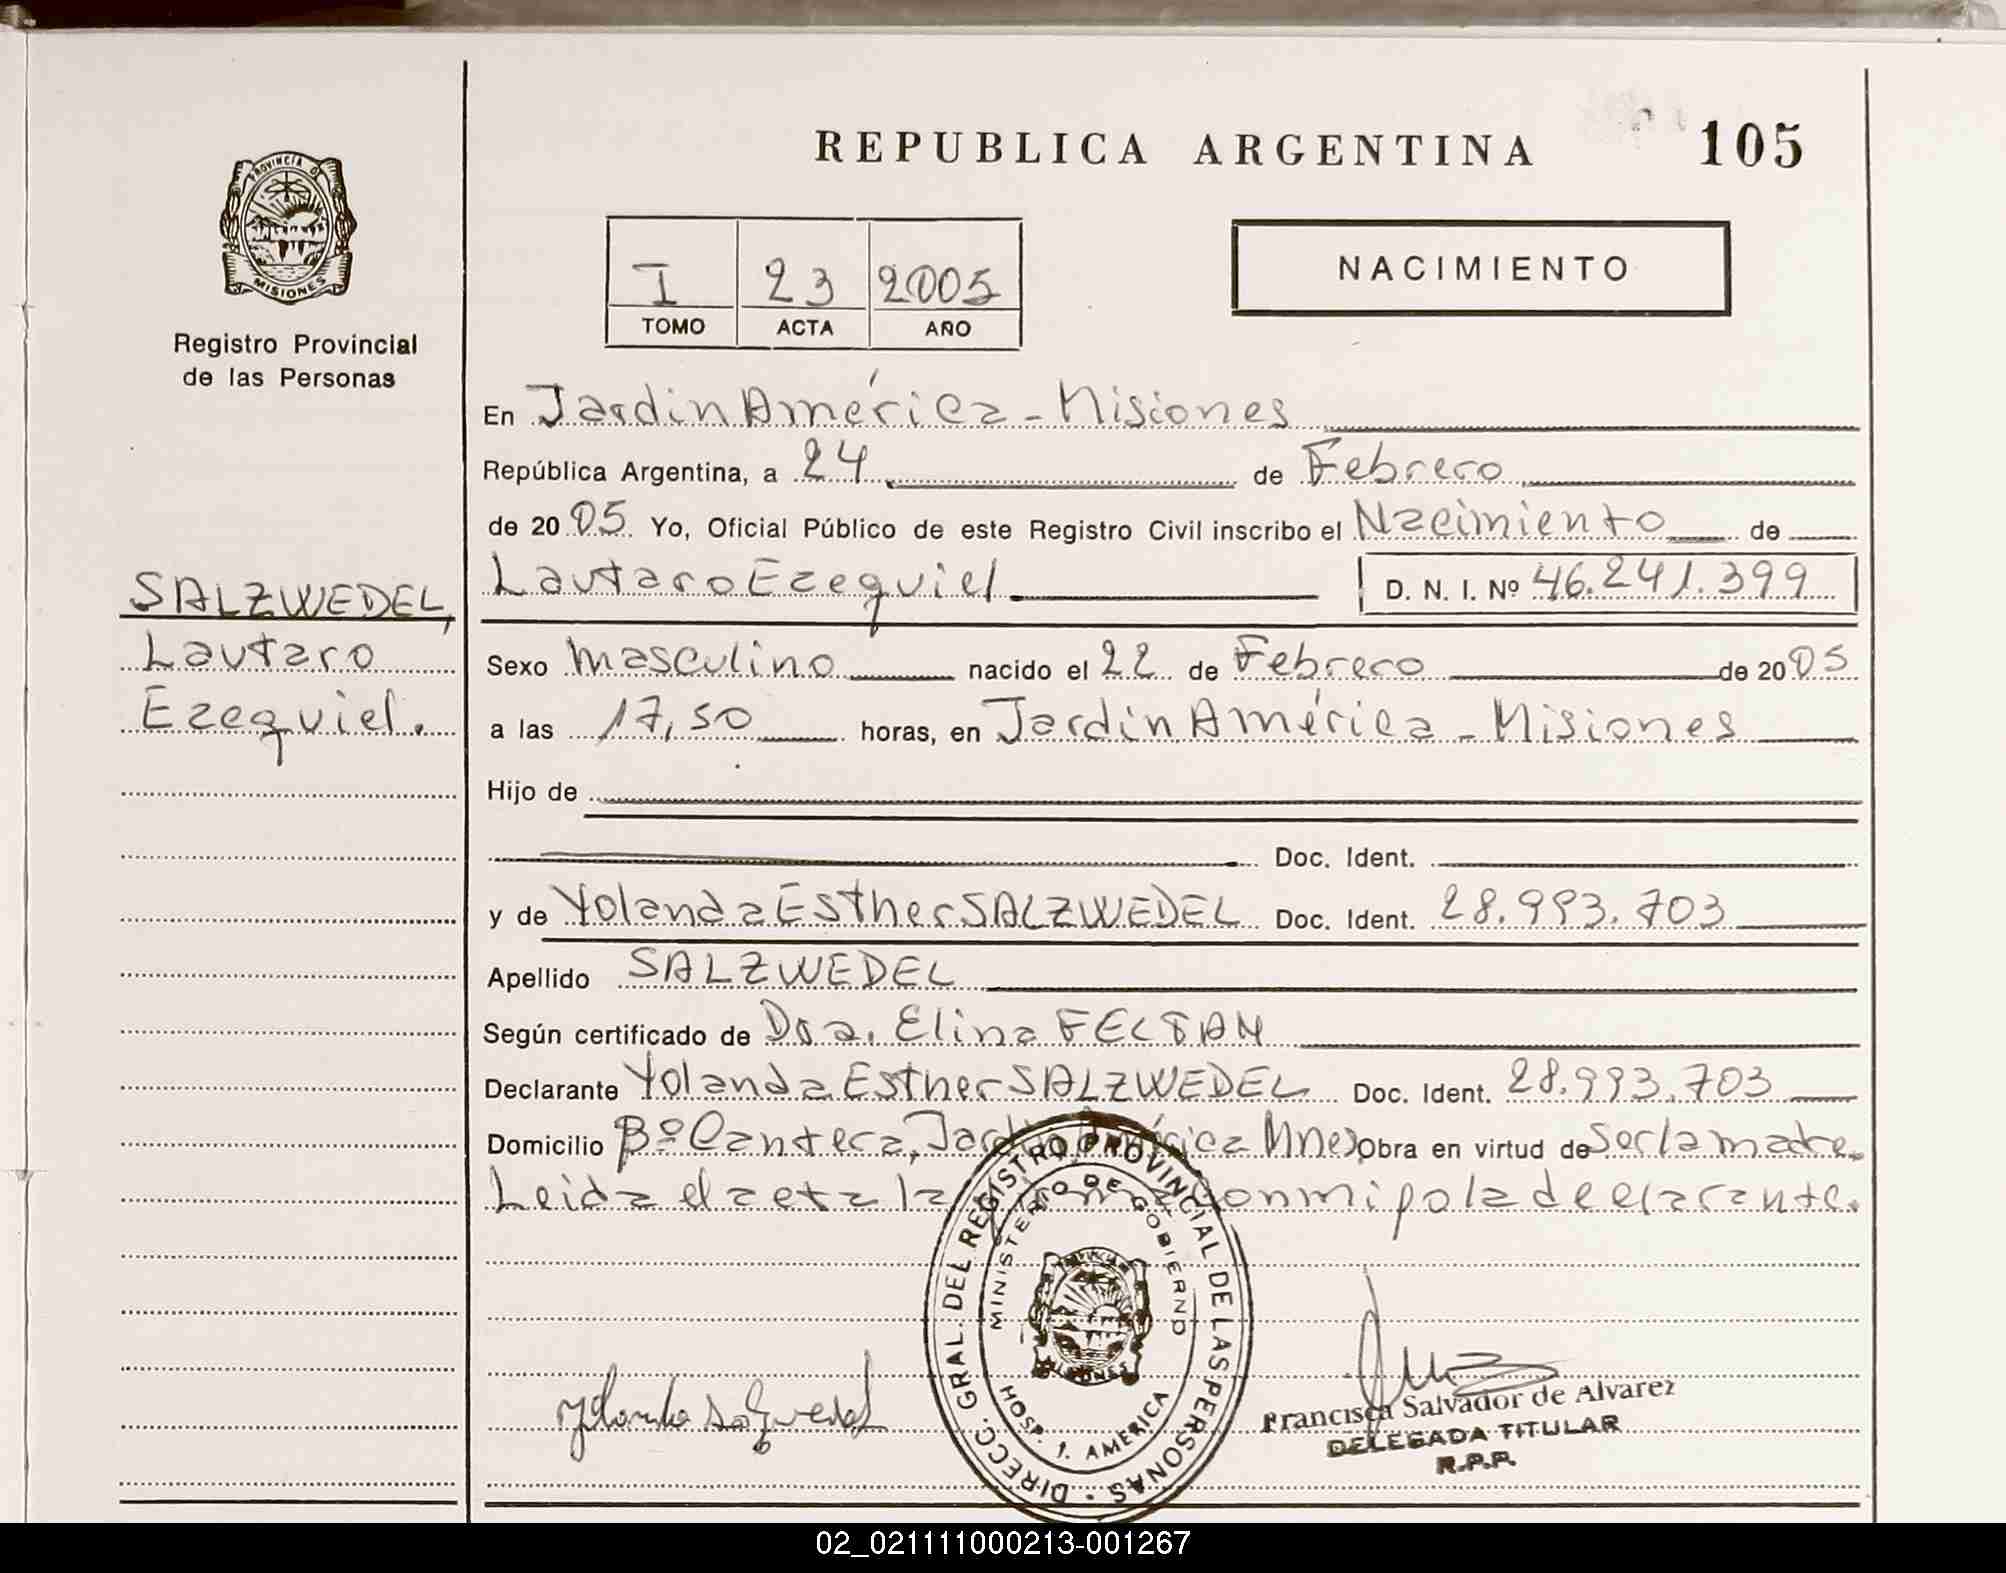 REPUBLICA ARGENTINA 105
PROVINCIA DE
MISIONES
Registro Provincial
de las Personas
I 23 2005
TOMO ACTA AÑO
NACIMIENTO
SALZWEDEL,
Lautaro
Ezequiel.
En Jardin América - Misiones
República Argentina, a 24 de Febrero
de 2005 Yo, Oficial Público de este Registro Civil inscribo el Nacimiento de
Lautaro Ezequiel D. N. I. Nº 46.241.399
Sexo masculino nacido el 22 de Febrero de 2005
a las 17,50 horas, en Jardin América - Misiones
Hijo de
Doc. Ident.
y de Yolanda Esther SALZWEDEL Doc. Ident. 28.993.703
Apellido SALZWEDEL
Según certificado de Dra. Elina
Declarante Yolanda Esther SALZWEDEL Doc. Ident. 28.993.703
Domicilio Bº Cantera, Jardin América Mnes Obra en virtud de Ser la madre.
Leida el acta la conmigo la declarante.
DIRECC. GRAL. DEL REGISTRO PROVINCIAL DE LAS PERSONAS
MINISTERIO DE GOBIERNO
MISIONES
HOSP. J. AMERICA
Francisca Salvador de Alvarez
DELEGADA TITULAR
R.P.P.
02_021111000213-001267